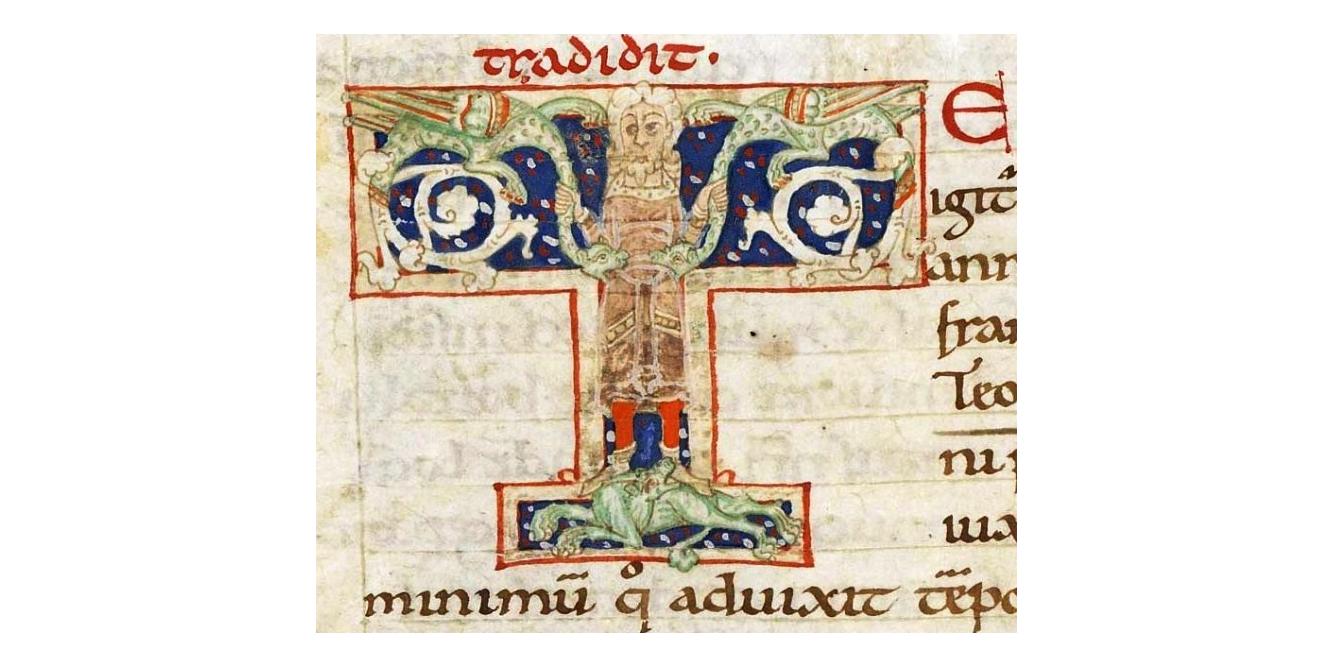 tradidit.
T E
igit̄
ann
fran
Teo
ni p
uia
minimū q̊ aduixit tēpo